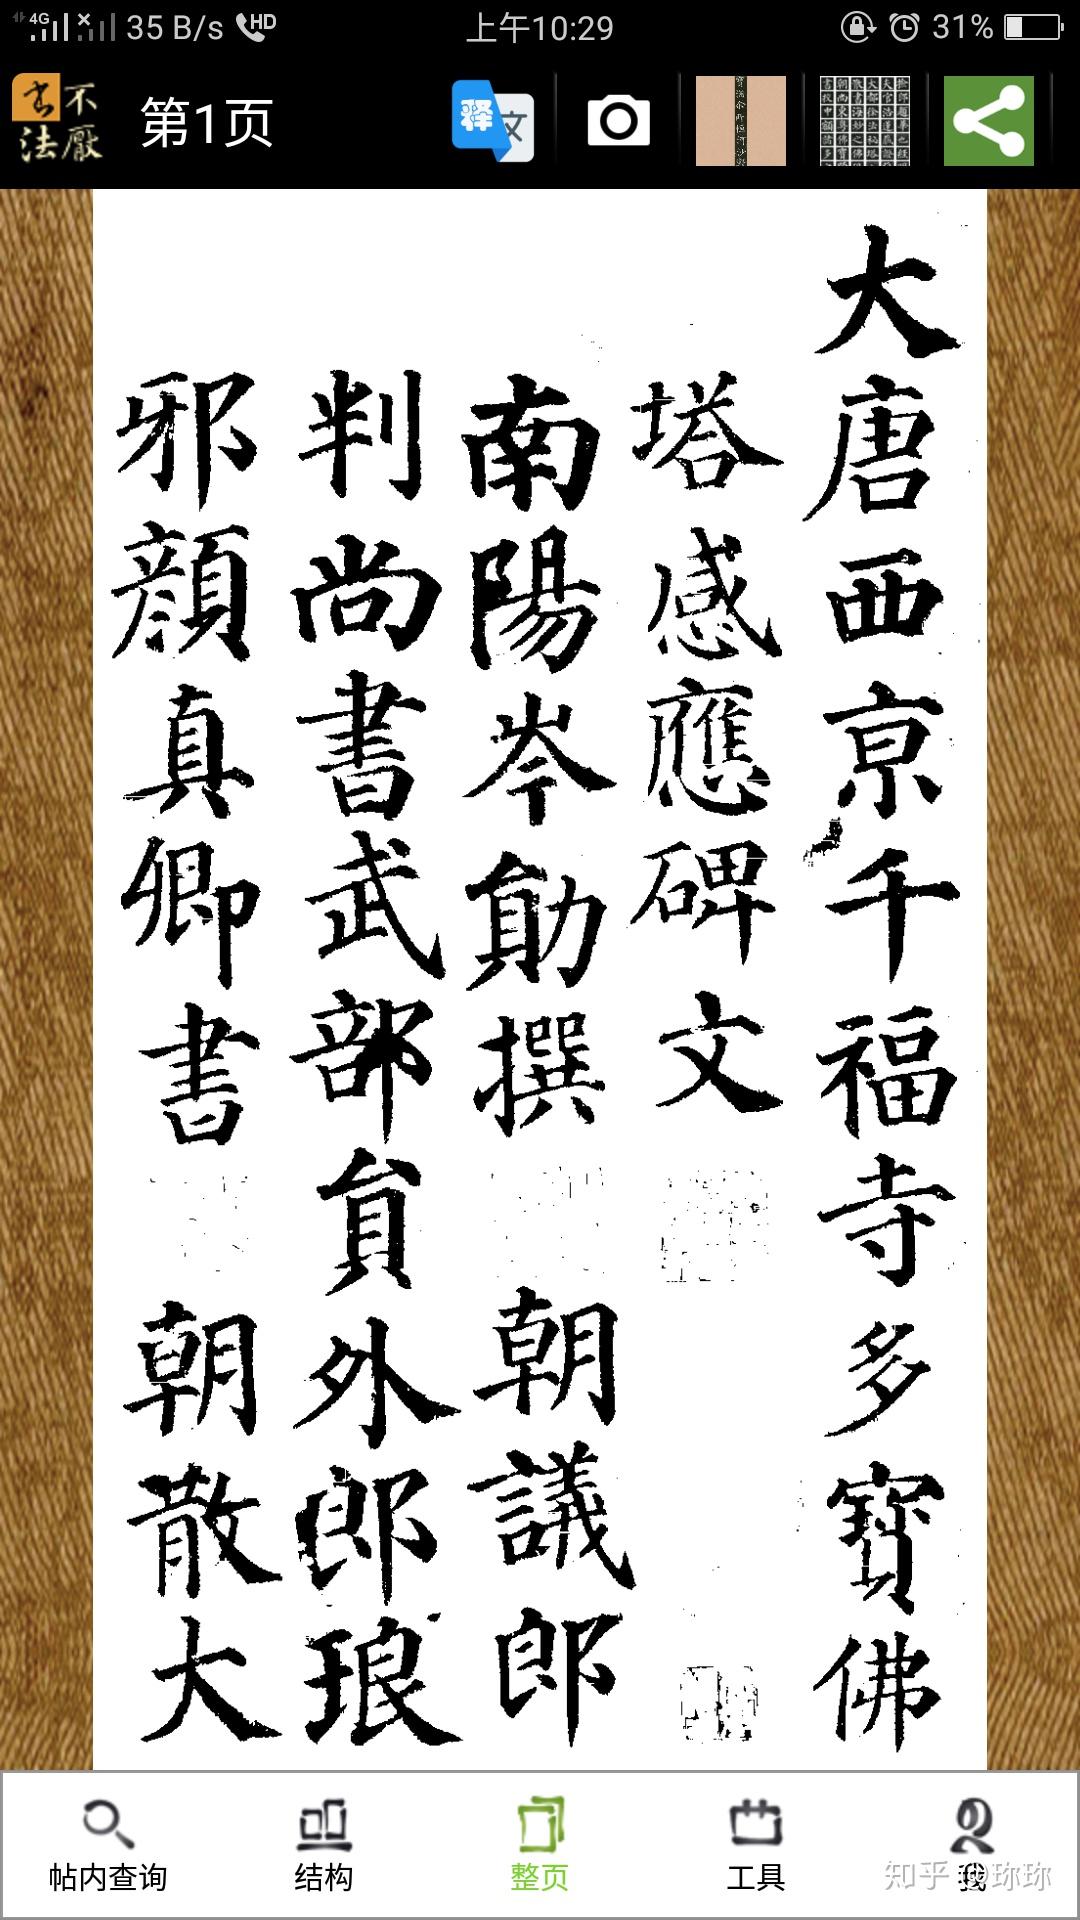 4G 35 B/s HD 上午10:29 31%
不厭書法
第1页
释 文
大唐西京千福寺多寶佛
塔感應碑文
南陽岑勛撰 朝議郎
判尚書武部員外郎琅
邪顏真卿書 朝散大
帖内查询 结构 整页 工具 我
知乎 @珎珎